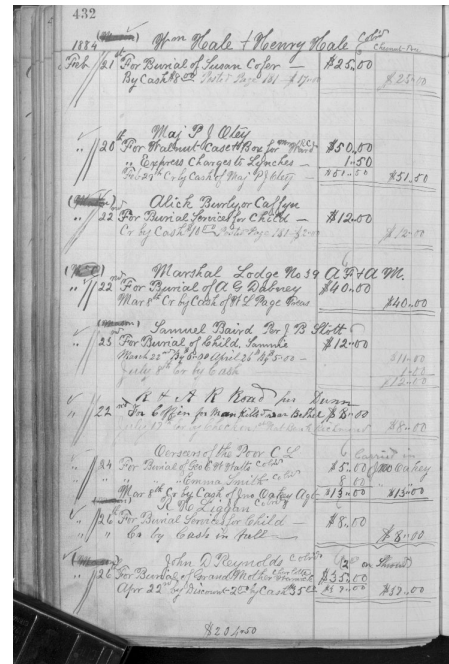 432
1884 Wm Heale & Henry Heale Cold
Feb 21st For Burial of Susan Coser $25.00
By Cash $8.00 Posted Page 181 $17.00 $25.00
Maj P J Otey
20th For Walnut Case & Box for $50.00
" Express Charges to Lynches 1.50
Feb 29th Cr by Cash of Maj P J Otey $51.50 $51.50
Alick Burly or
22nd For Burial Services for Child $12.00
Cr by Cash $10.00 Posted Page 181 $2.00 $12.00
Marshal Lodge No 39 A F & A M.
22nd For Burial of A G Dabney $40.00
Mar 8th Cr by Cash of Page $40.00
Samuel Baird Per J B Stott
23 For Burial of Child, Sammie $12.00
March 22nd By 6.00 April 26th By 5.00 $11.00
July 8th Cr by Cash 1.00
$12.00
R & A R Road per Dunn
22nd To Coffin for Man Killed near $8.00
$8.00
Overseers of the Poor C L
24 For Burial of Geo E W Watts Cold $5.00 Jno Oakey
" " " Emma Smith Cold 8.00
Mar 8th Cr by Cash of Jno Oakey Agt $13.00 $13.00
R H Liggan Cold
26th For Burial Services for Child $8.00
" " Cr by Cash in full $8.00
John D Reynolds Cold
26th For Burial of Grand Mother $35.00
Apr 22nd by Discount 2.00 by Cash $35.00 $37.00 $37.00
$204.50